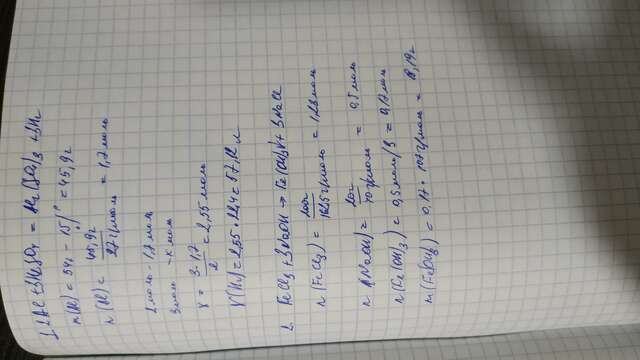 1. 2Al + 3H2SO4 = Al2(SO4)3 + 3H2
m(Al) = 54г - 15% = 45,9г
n(Al) = 45,9г / 27г/моль = 1,7моль
2моль - 1,7моль
3моль - x моль
x = 3·1,7 / 2 = 2,55 моль
V(H2) = 2,55 · 22,4 = 57,12 л
2. FeCl3 + 3NaOH → Fe(OH)3↓ + 3NaCl
n(FeCl3) = 200г / 162,5г/моль = 1,23моль
n(NaOH) = 20г / 40г/моль = 0,5моль
n(Fe(OH)3) = 0,5моль/3 = 0,17моль
m(Fe(OH)3) = 0,17 · 107г/моль = 18,19г